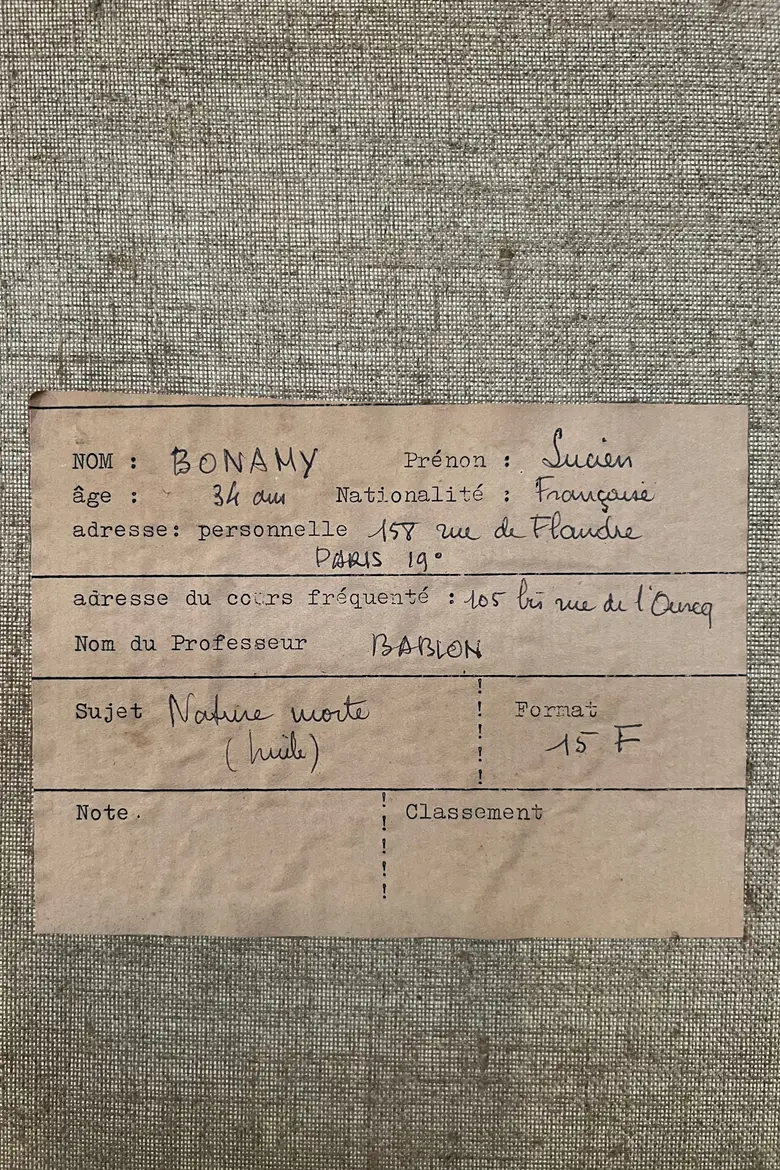 NOM : BONAMY Prénon : Lucien
âge : 34 ans Nationalité : Française
adresse: personnelle 158 rue de Flandre
PARIS 19°
adresse du cours fréquenté : 105 bis rue de l'Ourcq
Nom du Professeur BABLON
Sujet Nature morte ! Format
(huile) 15 F
Note. ! Classement